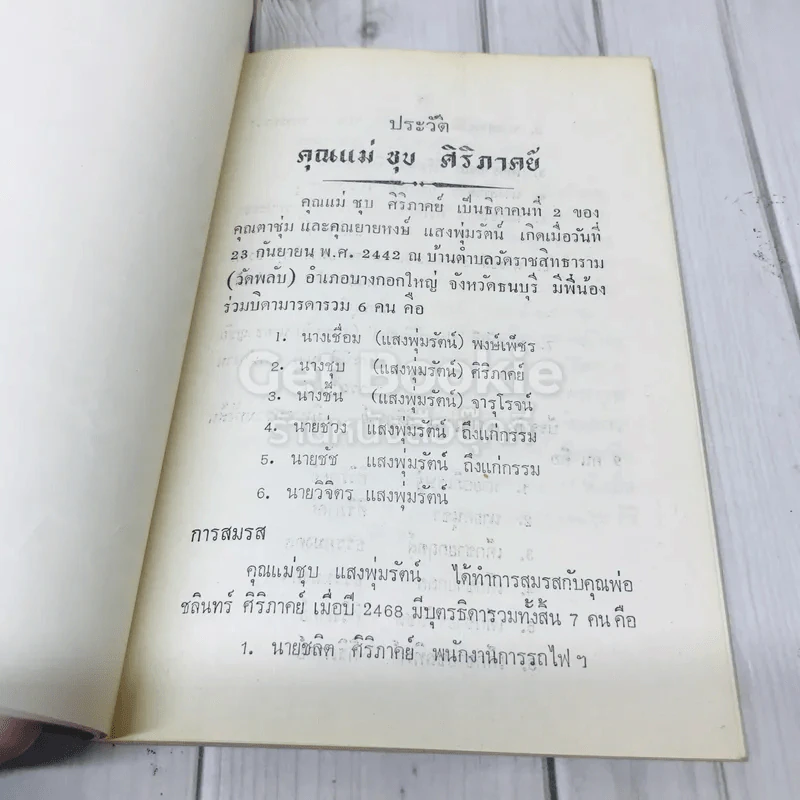 ประวัติ
คุณแม่ ชุบ ศิริภาคย์
คุณแม่ ชุบ ศิริภาคย์ เป็นธิดาคนที่ 2 ของ
คุณตาชุ่ม และคุณยายหงษ์ แสงพุ่มรัตน์ เกิดเมื่อวันที่
23 กันยายน พ.ศ. 2442 ณ บ้านตำบลวัดราชสิทธาราม
(วัดพลับ) อำเภอบางกอกใหญ่ จังหวัดธนบุรี มีพี่น้อง
ร่วมบิดามารดารวม 6 คน คือ
1. นางเชื่อม (แสงพุ่มรัตน์) พงษ์เพ็ชร
2. นางชุบ (แสงพุ่มรัตน์) ศิริภาคย์
3. นางชื่น (แสงพุ่มรัตน์) จารุโรจน์
4. นายช่วง แสงพุ่มรัตน์ ถึงแก่กรรม
5. นายชัช แสงพุ่มรัตน์ ถึงแก่กรรม
6. นายวิจิตร แสงพุ่มรัตน์
การสมรส
คุณแม่ชุบ แสงพุ่มรัตน์ ได้ทำการสมรสกับคุณพ่อ
ชลินทร์ ศิริภาคย์ เมื่อปี 2468 มีบุตรธิดารวมทั้งสิ้น 7 คน คือ
1. นายชลิต ศิริภาคย์ พนักงานการรถไฟ ฯ
Get Bookie